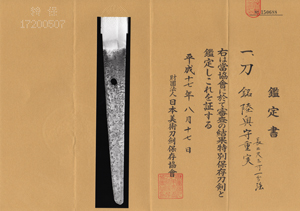 鑑定書
一、刀 銘 陸奥守重実
右は當協會に於て審査の結果特別保存刀剣と
鑑定しこれを証する
平成十七年八月十七日
財団法人 日本美術刀剣保存協會
特保
17200507